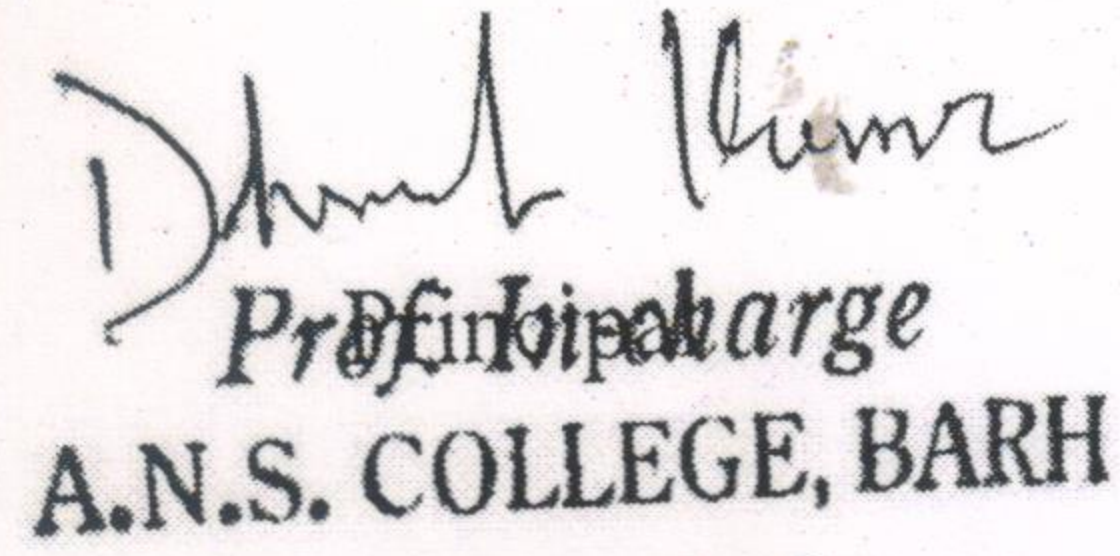 Kumar
Prof. Incharge
Principal
A.N.S. COLLEGE, BARH